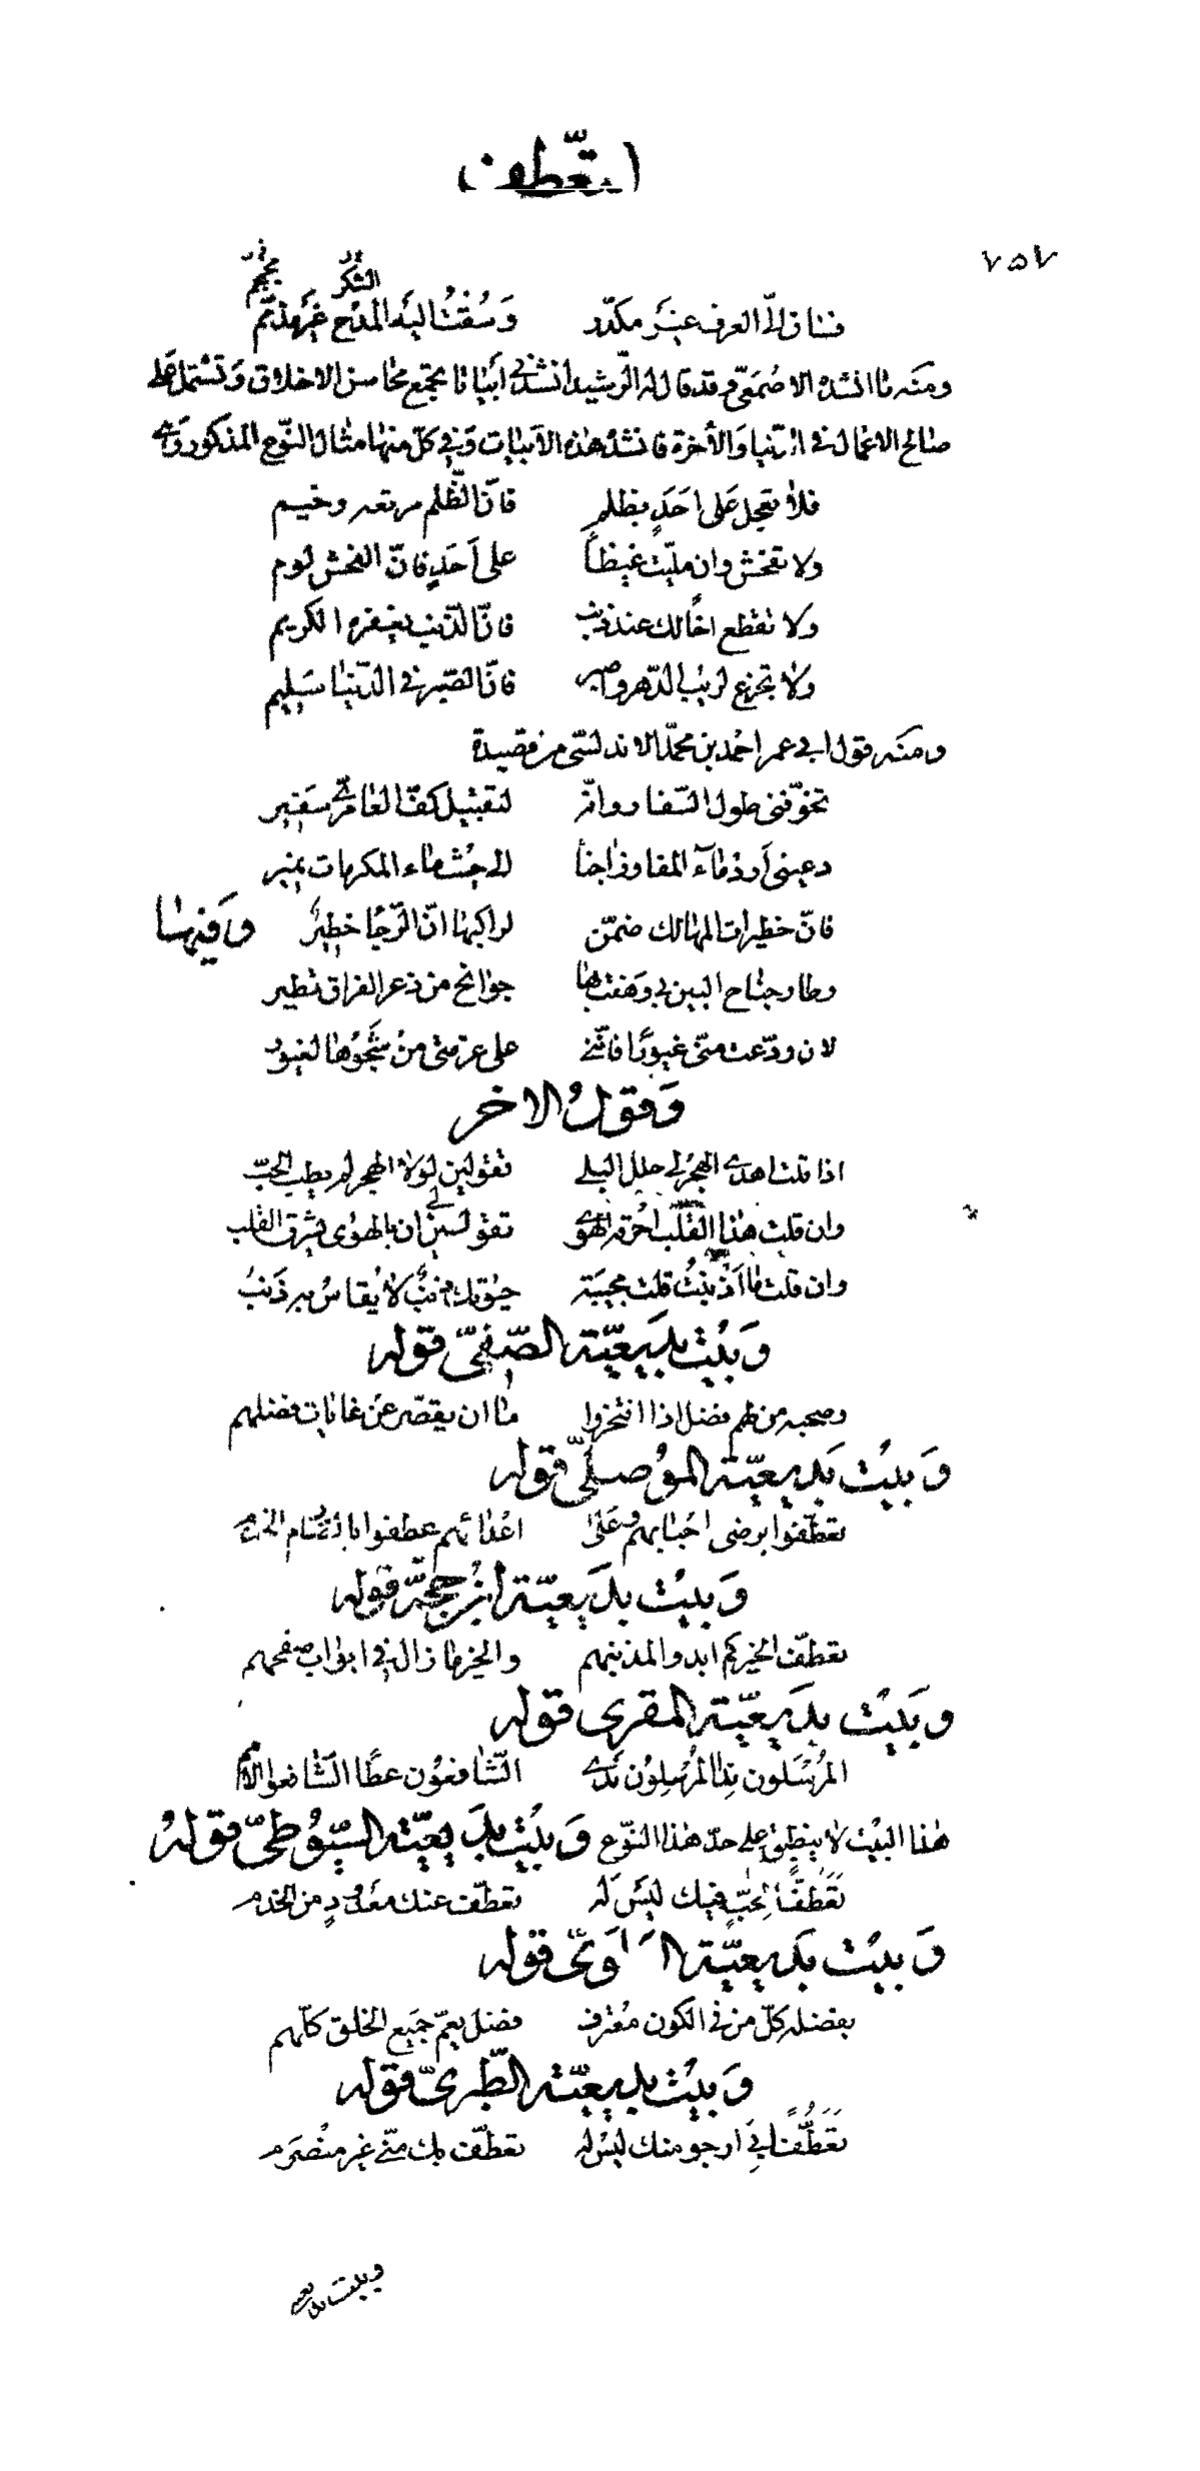 التعطف
٧٥٧
الشكر
فساق إليّ العرف غير مكدّر وَسُقتُ إليه المدح غير مذمّم
ومنه ما انشده الاصمعي وقد قال له الرّشيد انشدني أبياتا تجمع محاسن الاخلاق وتشتمل على
صالح الاعمال في الدّنيا والآخرة فانشد هذه الابيات وفي كلّ منها مثال النّوع المذكور وهى
فلا تعجل على احد بظلم فانّ الظّلم مرتعه وخيم
ولا تفحش وان ملّيت غيظاً على أحد فانّ الفحش لوم
ولا تقطع اخا لك عند ذنب فانّ الذّنب يغفره الكريم
ولا تجزع لريب الدّهر واصبر فانّ الصّبر في الدّنيا سليم
ومنه قول ابي عمر احمد بن محمّد الاندلسّى من قصيدة
تخوّفنى طول السّفار وانّه لتقبيل كفّ العامريّ سفير
دعينى أرد ماء المفاوز اجنا الى حيث ماء المكرمات نمير
فانّ خطيرات المهالك ضمّن لراكبها انّ الجزاء خطير وفيها
وطار جناح البين بي وهفت بها جوانح من ذعر الفراق تطير
لان ودّعت منّى غيورا فانّني على عزمتى من شجوها لغيور
وقول الاخر
اذا قلت اهدى الهجر لي حلل البلى تقولين لولا الهجر لم يطب الحبّ
وان قلت هذا القلب احرقه الهوى تقولين لي ان الهوى شرّق القلب
وان قلت ما اذنبت قلت مجيبة حيوتك ذنب لا يقاس به ذنب
وبيت بديعيّة الصّفيّ قوله
وصحبه من لهم فضل اذا افتخروا ما ان يقصّر عن غايات فضلهم
وبيت بديعيّة الموصليّ قوله
تعطّفوا برضى احبابهم وعلى اعدائهم عطفوا بالصّارم الخذم
وبيت بديعيّة ابن حجّة قوله
تعطّف الخير كم ابدوا لمذنبهم والخير ما زال في ابواب صفحهم
وبيت بديعيّة المقرى قوله
المرسلون بذا المرسلون ندى الشّافعون عطا الشّافعوا الامم
هذا البيت لا ينطبق على حدّ هذا النوع وبيت بديعيّة السّيوطىّ قوله
تعطّفا لمحبّ فيك ليس له تعطّف عنك معدود من الخدم
وبيت بديعيّة العلويّ قوله
بفضله كلّ من في الكون معترف فضل يعمّ جميع الخلق كلّهم
وبيت بديعيّة الطّبريّ قوله
تعطّفا في ارجو منك ليس له تعطّف بك منّي غير منصرم
وبيت بديعية